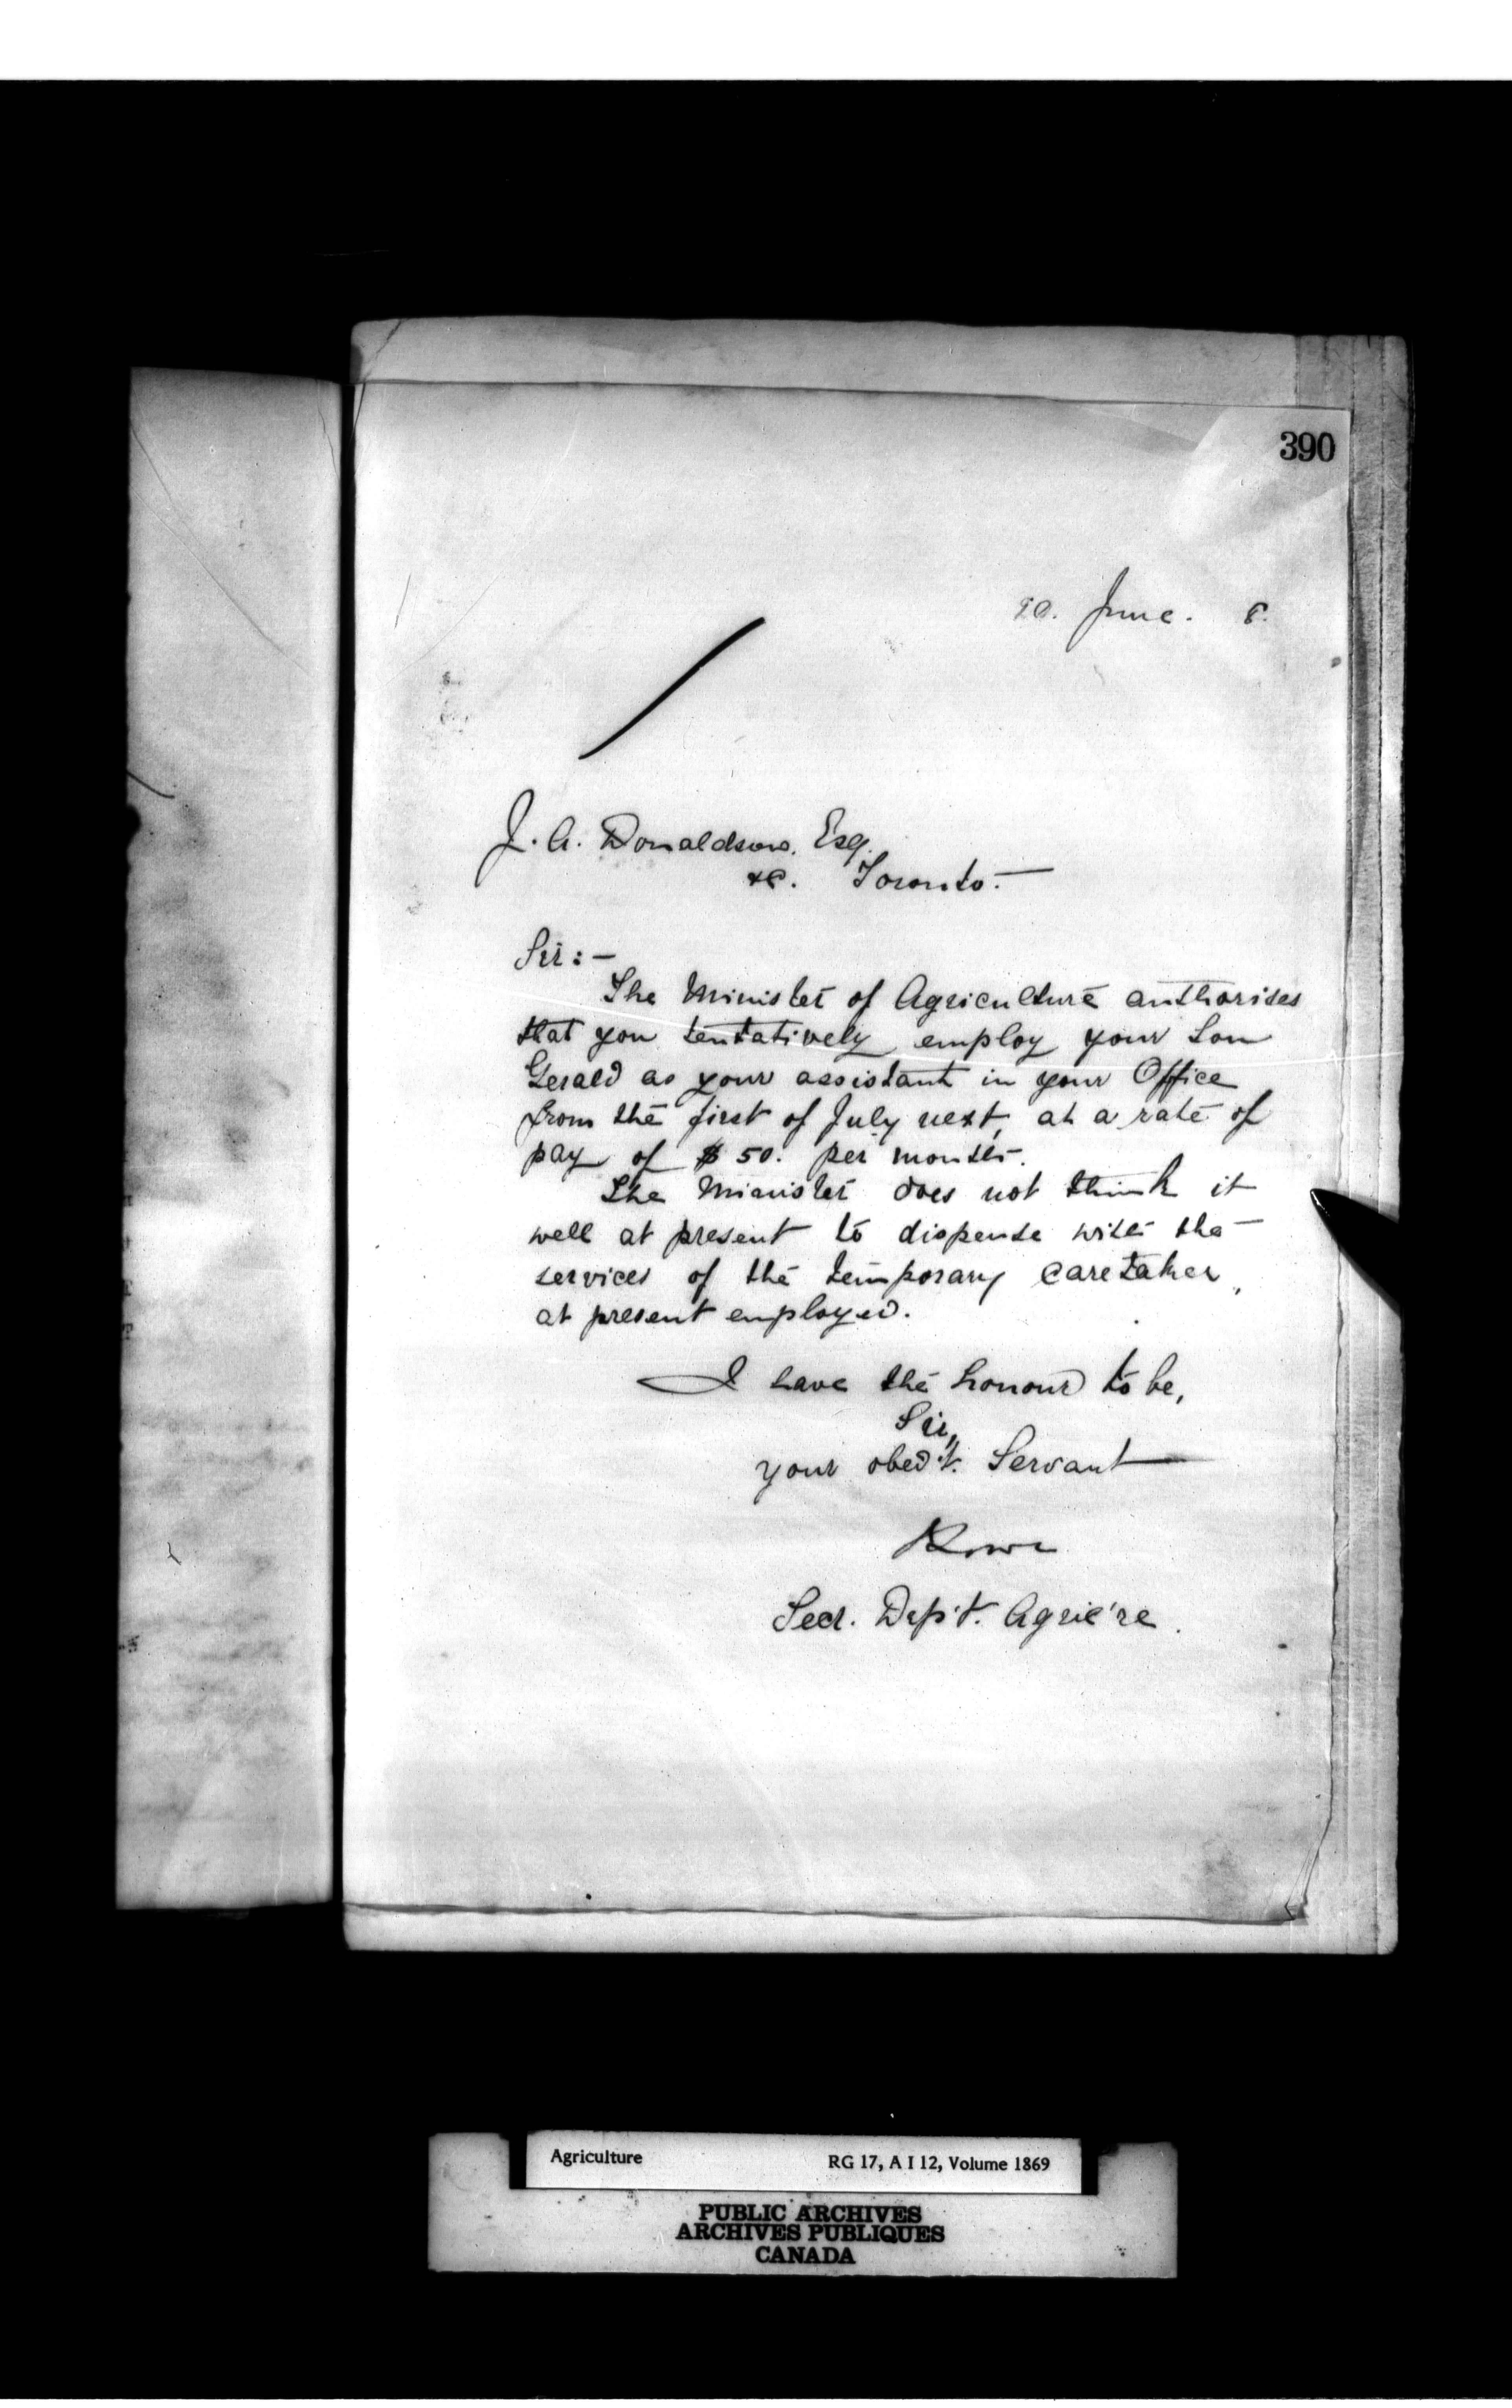 390
20. June. 8.
J. A. Donaldson. Esq.
&c. Toronto.—
Sir:—
The Minister of Agriculture authorises
that you tentatively employ your Son
Gerald as your assistant in your Office
from the first of July next, at a rate of
pay of $50. per month.
The Minister does not think it
well at present to dispense with the
services of the temporary caretaker,
at present employed.
I have the honour to be,
Sir,
your obed't. Servant
Secr. Dep't. Agric're.
Agriculture RG 17, A I 12, Volume 1869
PUBLIC ARCHIVES
ARCHIVES PUBLIQUES
CANADA